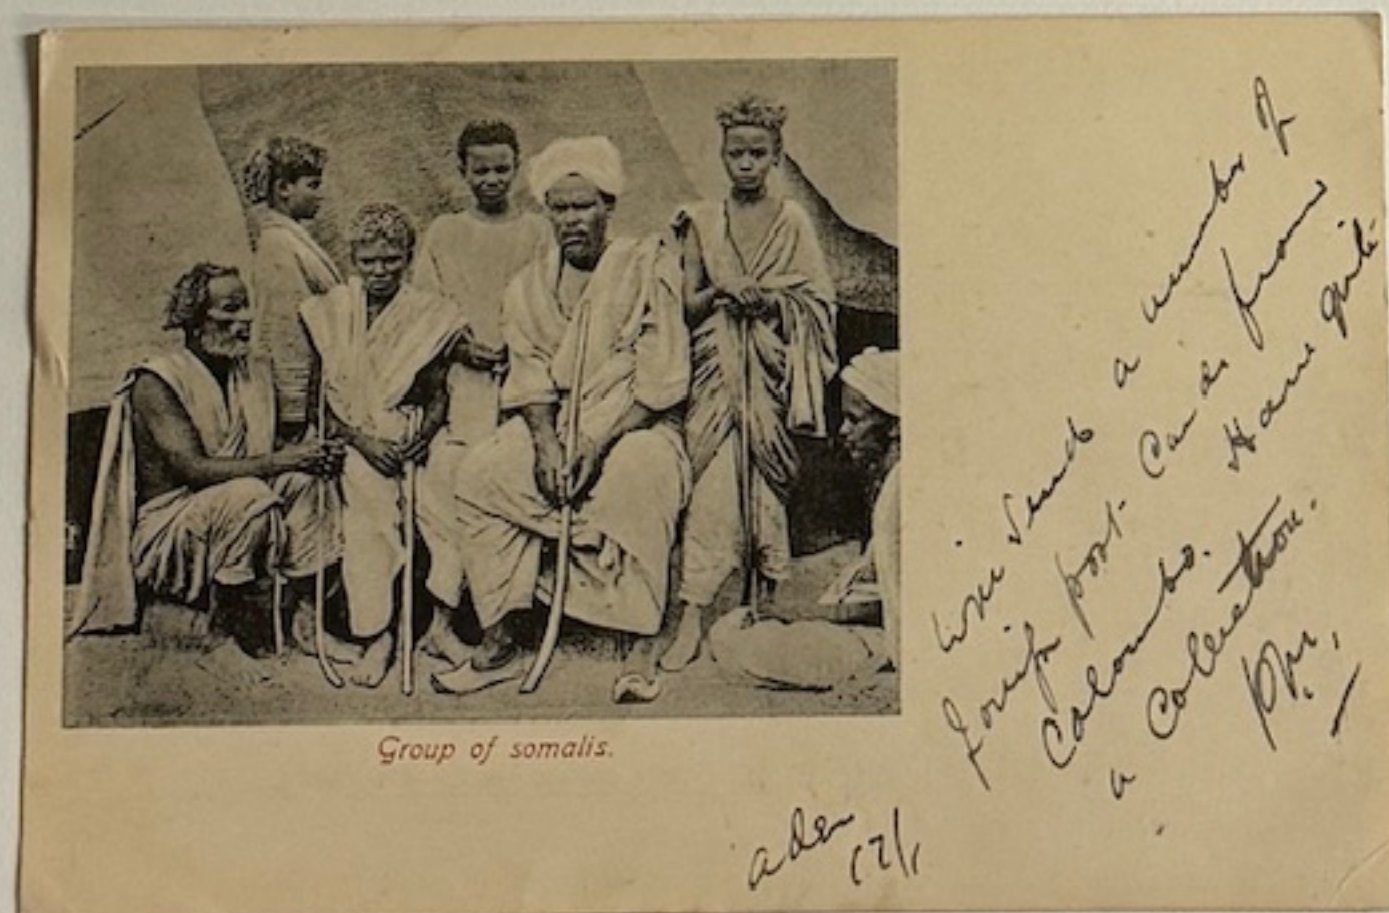 Group of somalis.
Will send a number of
foreign post cards from
Colombo. Have quite
a collection.
Aden
17/1